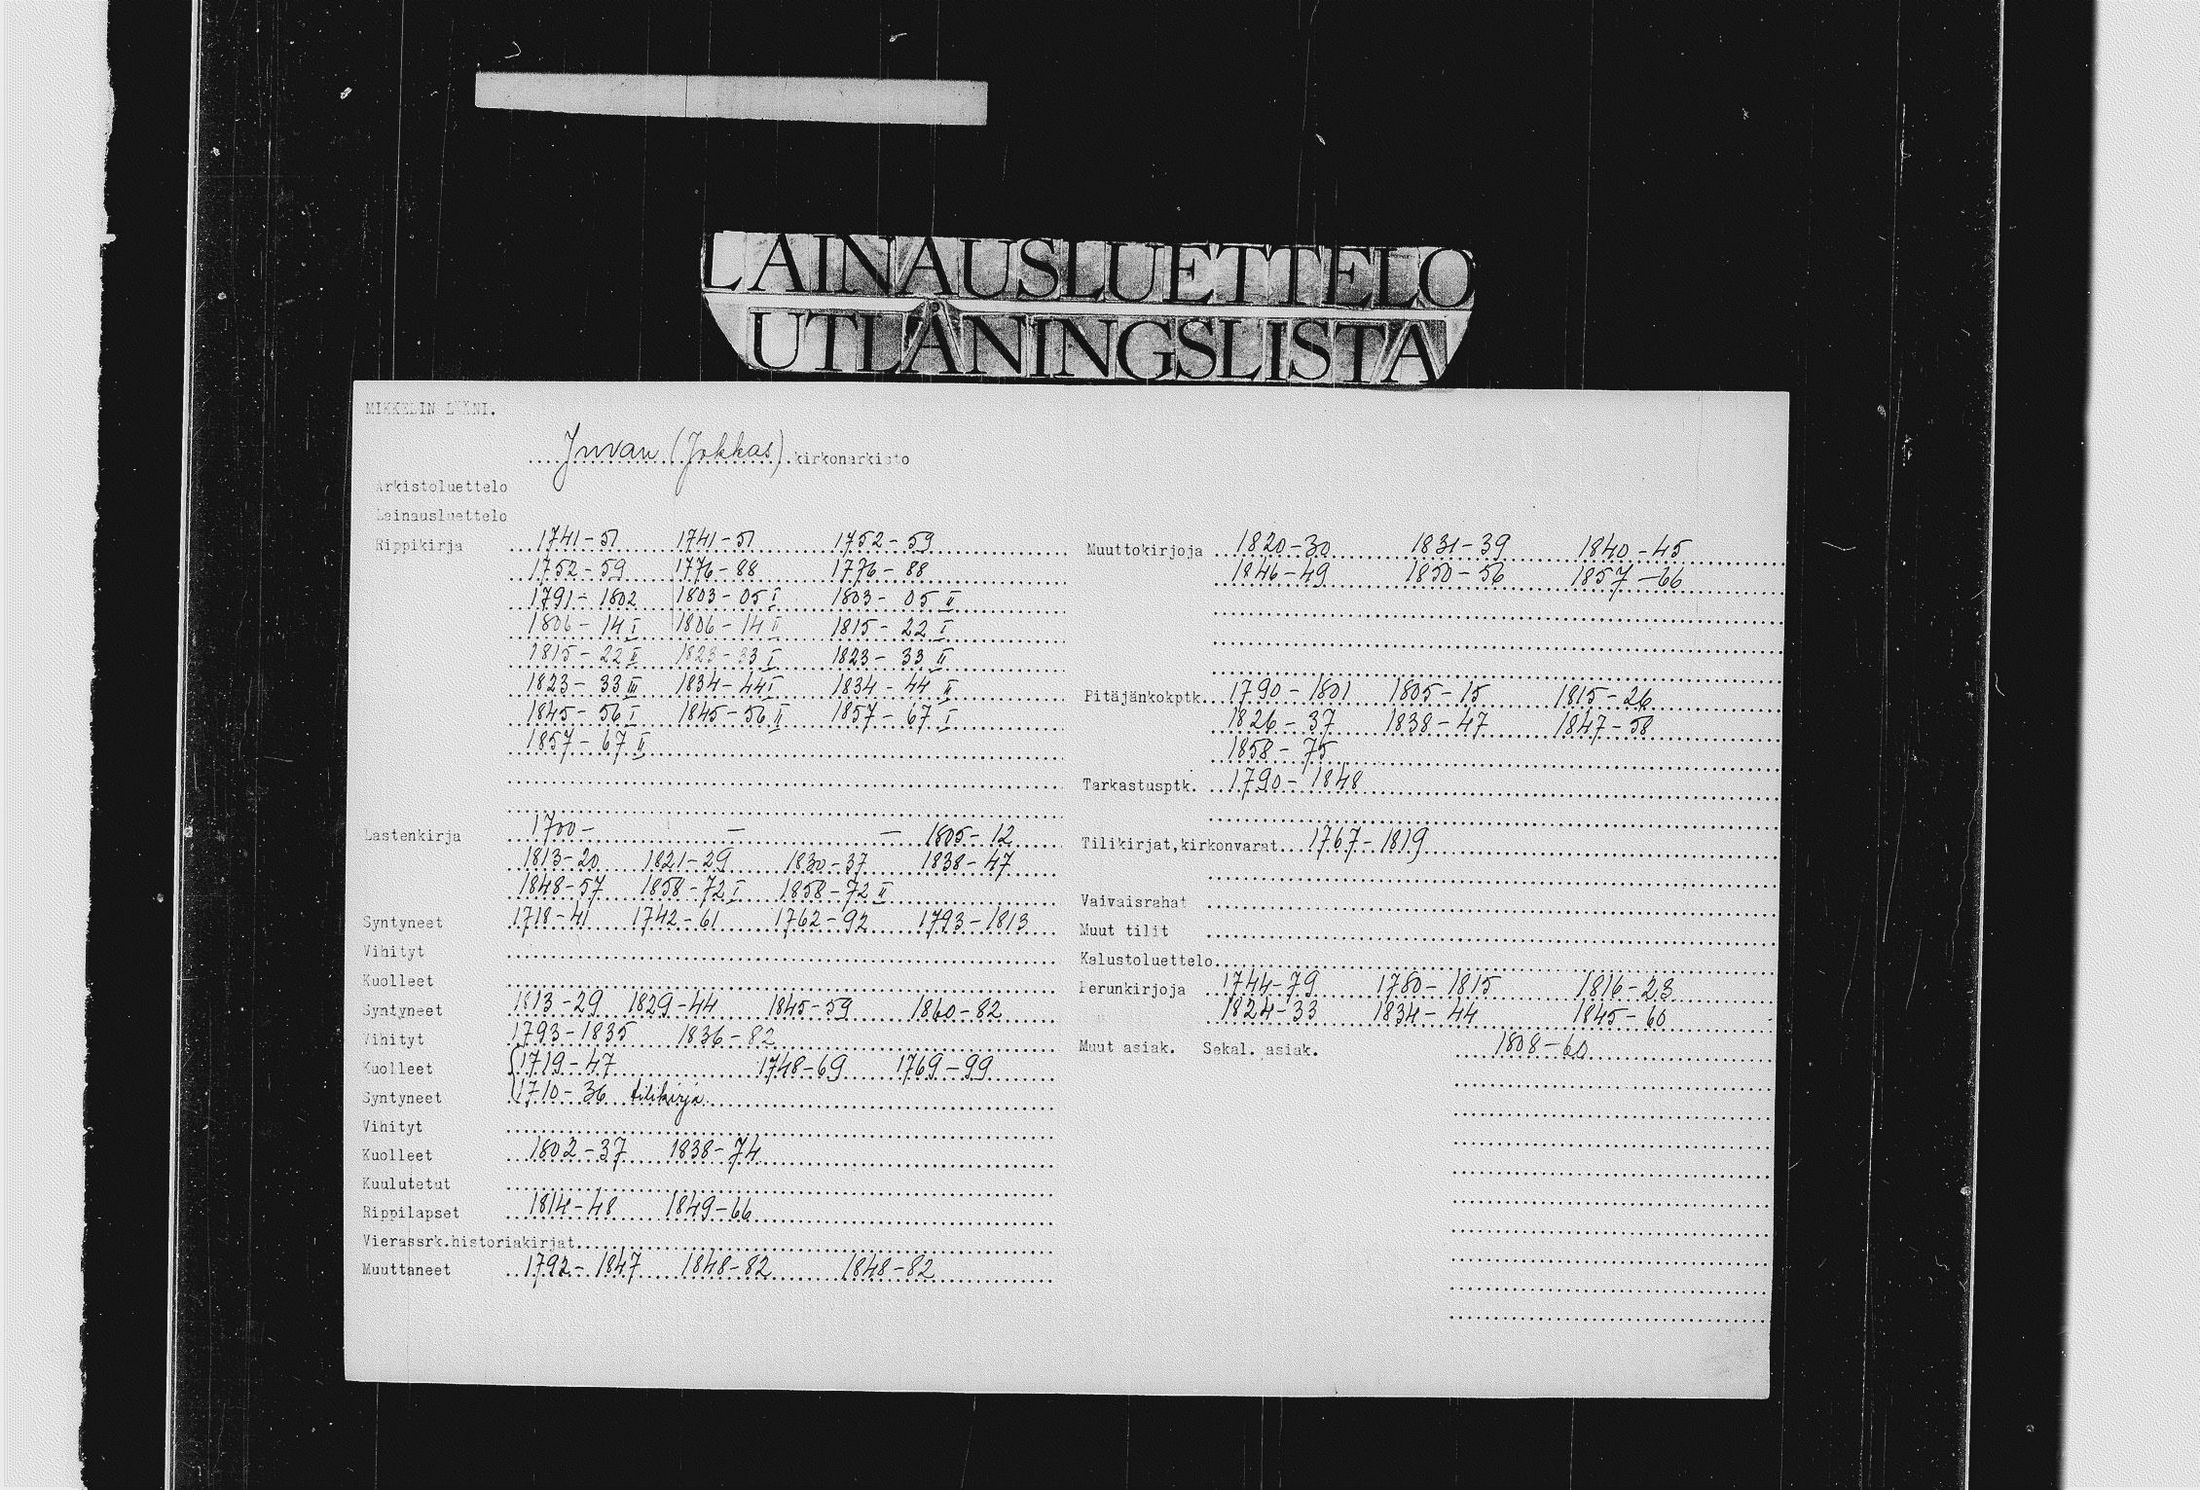 LAINAUSLUETTELO
UTLÅNINGSLISTA
MIKKELIN LÄÄNI.
Juvan (Jokkas) kirkonarkisto
Arkistoluettelo
Lainausluettelo
Rippikirja 1741-51 1741-51 1752-59
1752-59 1776-88 1776-88
1791-1802 1803-05 I 1803-05 II
1806-14 I 1806-14 II 1815-22 I
1815-22 II 1823-33 I 1823-33 II
1823-33 III 1834-44 I 1834-44 II
1845-56 I 1845-56 II 1857-67 I
1857-67 II
Lastenkirja 1700- - - 1805-12
1813-20 1821-29 1830-37 1838-47
1848-57 1858-72 I 1858-72 II
Syntyneet 1718-41 1742-61 1762-92 1793-1813
Vihityt
Kuolleet
Syntyneet 1813-29 1829-44 1845-59 1860-82
Vihityt 1793-1835 1836-82
Kuolleet 1719-47 1748-69 1769-99
Syntyneet 1710-36 tilikirja
Vihityt
Kuolleet 1802-37 1838-74
Kuulutetut
Rippilapset 1814-48 1849-66
Vierassrk.historiakirjat
Muuttaneet 1792-1847 1848-82 1848-82
Muuttokirjoja 1820-30 1831-39 1840-45
1846-49 1850-56 1857-66
Pitäjänkokptk. 1790-1801 1805-15 1815-26
1826-37 1838-47 1847-58
1858-75
Tarkastusptk. 1790-1848
Tilikirjat, kirkonvarat 1767-1819
Vaivaisrahat
Muut tilit
Kalustoluettelo
Perunkirjoja 1744-79 1780-1815 1816-23
1824-33 1834-44 1845-60
Muut asiak. Sekal. asiak. 1808-60